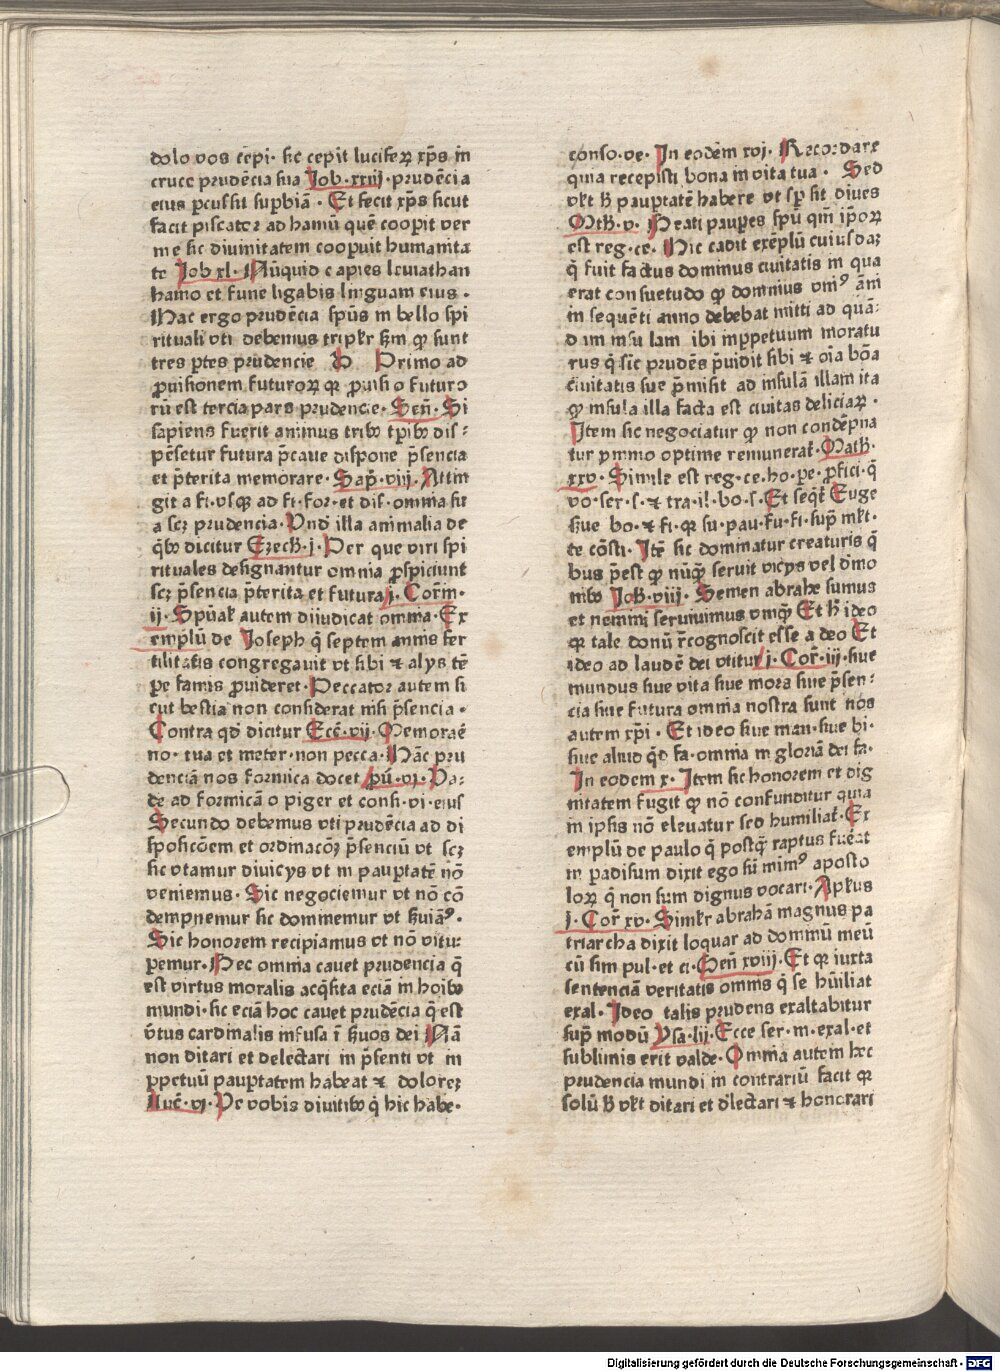 dolo vos cēpi· sic cepit luciferꝝ xp̄s in
cruce prudēcia sua Job·xxvj·prudēcia
eius ꝑcussit suꝑbiā· Et fecit xp̄s sicut
facit piscator ad hamū quē cooꝑit ver
me sic diuinitatem cooꝑuit humanita
te Job xl· Nūquid capies leuiathan
hamo et fune ligabis linguam eius·
Hac ergo prudēcia sp̄us in bello spi
rituali vti debemus triplr̄ ẜm ꝙ sunt
tres ꝑtes prudencie Primo ad
ꝓuisionem futuroꝝ qꝫ ꝓuisio futuro
rū est tercia pars prudencie· Sen̄· Si
sapiens fuerit animus tribꝫ tꝑibꝫ dis⸗
pēsetur futura p̄caue dispone p̄sencia
et p̄terita memorare· Sap̄·viij·Attin
git a fi·vsqꝫ ad fi·for·et dis·omnia su
a scꝫ prudencia·Vnd̄ illa animalia de
q̄bꝫ dicitur Ezech·j·Per que viri spi
rituales designantur omnia ꝓspiciunt
scꝫ p̄sencia p̄terita et futura j·Corin·
ij· Sp̄ual̄ autem diiudicat omnia·Ex
emplū de Joseph q̄ septem annis fer
tilitatis congregauit vt sibi ⁊ alijs tē
ꝑe famis ꝓuideret·Peccator autem si
cut bestia non considerat nisi p̄sencia·
Contra qd̄ dicitur Ecc̄·vij·Memoraē
no·tua et ineter·non pecca·Hāc pru
denciā nos formica docet pū·vi·Va⸗
de ad formicā o piger et consi·vi·eius
Secundo debemus vti prudēcia ad di
sposicōem et ordinacōꝫ p̄senciū vt scꝫ
sic vtamur diuicijs vt in pauꝑtatē nō
veniemus· Sic negociemur vt nō cō
dempnemur sic dominemur vt ẜuiāꝰ·
Sic honorem recipiamus vt nō vitu⸗
ꝑemur·Hec omnia cauet prudencia q̄
est virtus moralis acq̄sita eciā in hoībꝫ
mundi·sic eciā hoc cauet prudēcia q̄ est
v̄tus cardinalis infusa ī ẜuos dei Nā
non ditari et delectari in p̄senti vt in
ꝑpetuū pauꝑtatem habeat ⁊ doloreꝫ
Luc̄·vj·Ve vobis diuitibꝫ q̄ hic habe·
conso·ve· In eodem xvj· Recordare
quia recepisti bona in vita tua· Sed
vl̄t ẜ pauꝑtatē habere vt sp̄ sit diues
Mth̄·v· Beati pauꝑes sp̄u qm̄ ip̄oꝝ
est reg·ce· Hic cadit exēplū cuiusdaꝫ
q̄ fuit factus dominus ciuitatis in qua
erat consuetudo ꝙ dominus vniꝰ āni
in sequēti anno debebat mitti ad quā⸗
dam insulam ibi inꝑpetuum moratu
rus q̄ sic prudēs p̄uidit sibi ⁊ oīa bōa
ciuitatis sue p̄misit ad insulā illam ita
ꝙ insula illa facta est ciuitas deliciaꝝ·
Item sic negociatur ꝙ non condēpna
tur ymmo optime remunerat̄·Math̄·
xxv· Simile est reg·ce·ho·pe·ꝓfici·q̄
vo·ser·s·⁊ tra·il·bo·s·Et seq̄t̄ Euge
ẜue bo·⁊ fi·qꝫ su·pau·fu·fi·suꝑ ml̄t·
te cōsti·Itē sic dominatur creaturis q̄
bus p̄est ꝙ nūq̄ seruit vicijs vel dm̄o
nibꝫ Joh̄·viij· Semen abrahe sumus
et nemini seruiuimus vnqꝫ Et h̄ ideo
qꝫ tale donū r̄cognoscit esse a deo Et
ideo ad laudē dei vtitur j·Cor̄·iij·siue
mundus siue vita siue mors siue p̄sen⸗
cia siue futura omnia nostra sunt nos
autem xp̄i· Et ideo siue man·siue bi·
siue aliud qd̄ fa·omnia in gloriā dei fa·
In eodem x· Item sic honorem et dig
nitatem fugit ꝙ nō confunditur quia
in ipsis nō eleuatur sed humiliat̄·Ex
emplū de paulo q̄ postq̄ raptus fuerat
in ꝑadisum dixit ego sū minīꝰ aposto
loꝝ q̄ non sum dignus vocari·Apl̄us
j·Cor̄ xv· Similr̄ abrahā magnus pa
triarcha dixit loquar ad dominū meū
cū sim pul·et ci·Gen̄ xviij·Et qꝫ iuxta
sentenciā veritatis omnis q̄ se hūiliat
exal·Ideo talis prudens exaltabitur
suꝑ modū Ysa·lij·Ecce ser·in·exal·et
sublimis erit valde·Omnia autem hec
prudencia mundi in contrariū facit qꝫ
solū ẜ vl̄t ditari et dl̄ectari ⁊ honorari
Digitalisierung gefördert durch die Deutsche Forschungsgemeinschaft · DFG